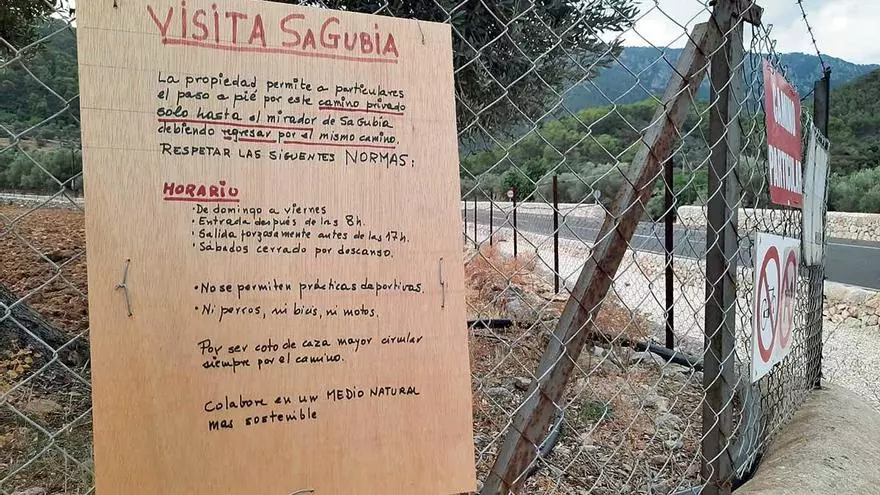 VISITA SAGUBIA
La propiedad permite a particulares
el paso a pié por este camino privado
solo hasta el mirador de Sa Gubia
debiendo regresar por el mismo camino.
RESPETAR LAS SIGUIENTES NORMAS:
HORARIO
• De domingo a viernes
• Entrada después de las 8h.
• Salida forzosamente antes de las 17h.
• Sábados cerrado por descanso.
• No se permiten prácticas deportivas.
• Ni perros, ni bicis, ni motos.
Por ser coto de caza mayor circular
siempre por el camino.
Colabore en un MEDIO NATURAL
mas sostenible
CAMINO
PARTICULAR